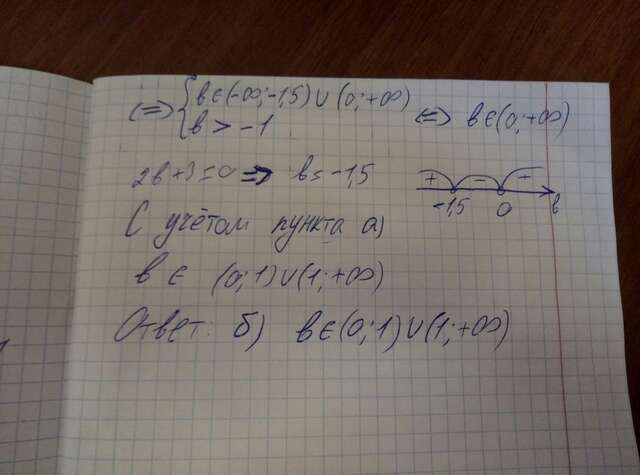 (=> { в ∈ (-∞; -1,5) ∪ (0; +∞)
в > -1
<=> в ∈ (0; +∞)
2в + 3 = 0 => в = -1,5
+ - -
-1,5 0 в
С учётом пункта а)
в ∈ (0; 1) ∪ (1; +∞)
Ответ: б) в ∈ (0; 1) ∪ (1; +∞)